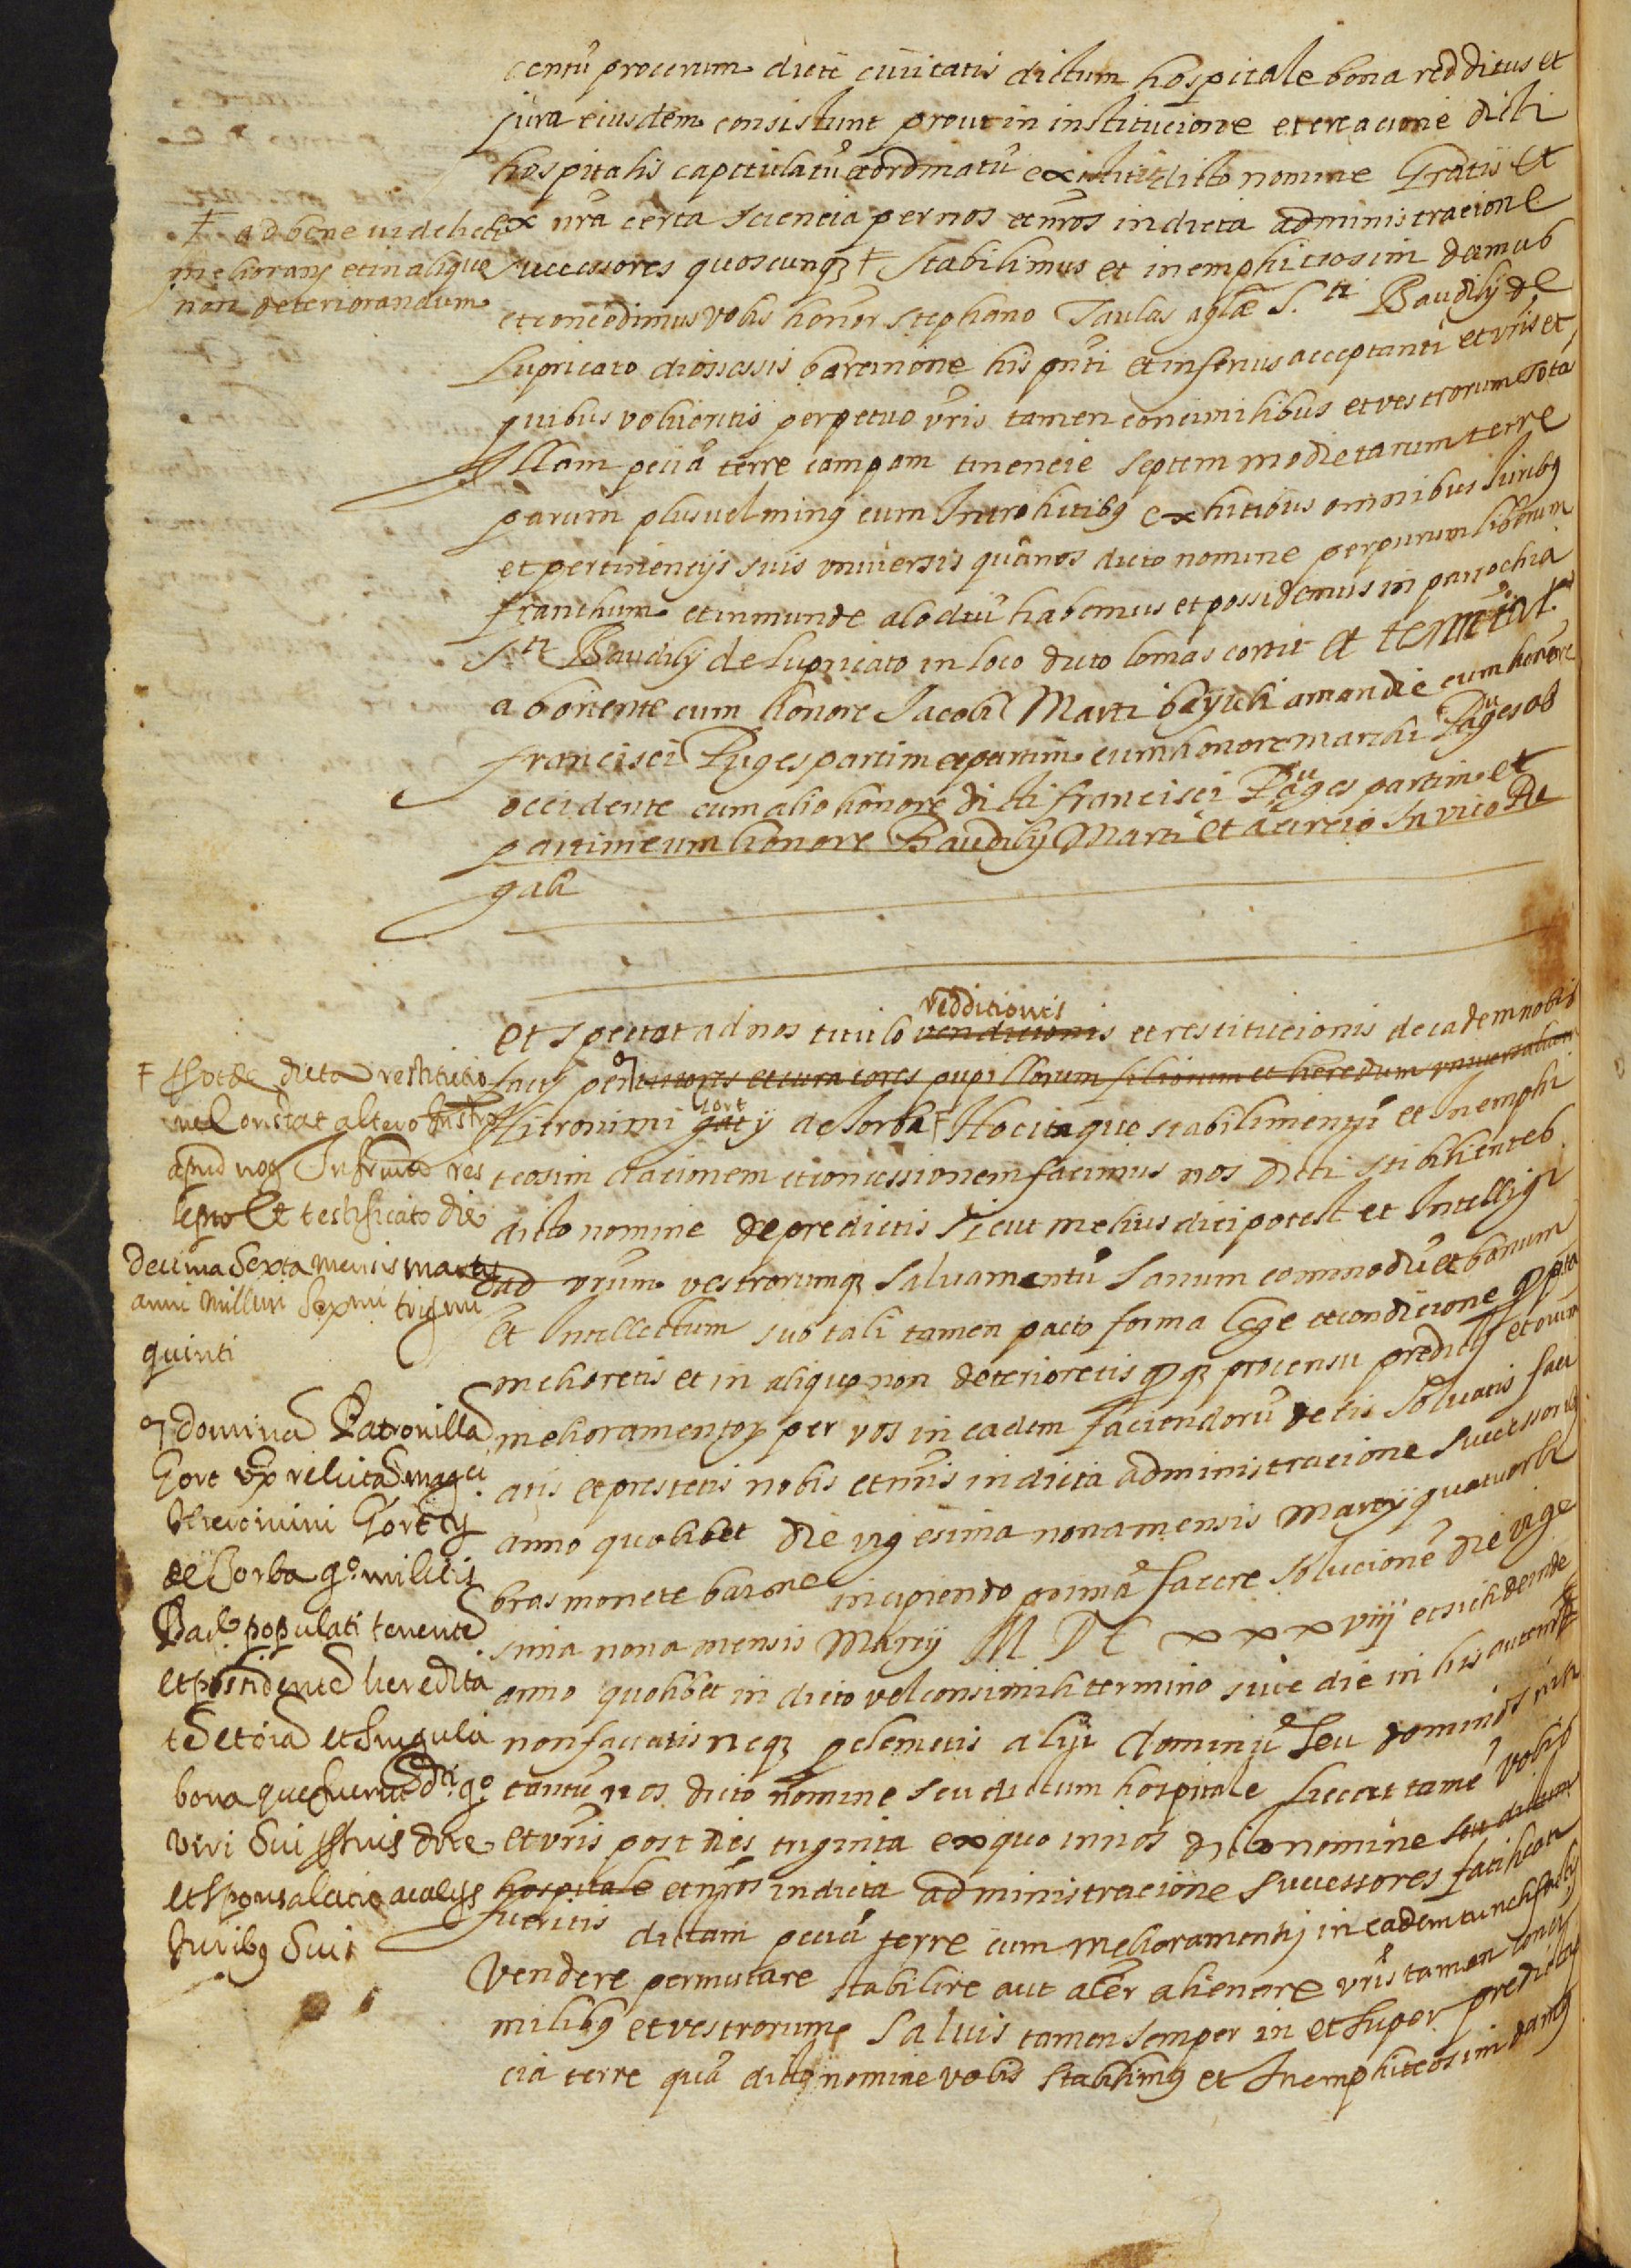 centū procerum dicte civitatis dictum hospitale bona redditus et
jura eiusdem consistunt prout in institucione et creacione dicti
hospitalis capitulatū aordinatū existit dicto nomine Gratis et
ex nr̄a certa sciencia per nos et nr̄os in dicta administracione
successores quoscunqȝ ⸸ Stabilimus et in emphiteosim damus
et concedimus vobis honor Stephano Taulas aglæ S.ti Baudilij de
Lupricato diocessis barcinone his pn̄ti et inferius acceptanti et vr̄is et
quibus volueritis perpetuo vr̄is tamen concimilibus et vestrorum Totā
Illam peciā terre campam tinencie septem modietarum terre
parum plus vel minꝰ cum Introhitibꝰ exhitibus omnibus Juribꝰ
et pertinencijs suis vniversis quā nos dicto nomine per purum liberum
franchum et inmunde alodiū habemus et possidemus in parrochia
S.ti Baudilij de Lupricato in loco dicto lomas cortit et termināt.
ab oriente cum honore Jacobi Marti a meridie cum honore
francisci Puges partim et partim cum honore Marchi Pages ab
occidente cum alio honore dicti francisci Pages partim et
partim cum honore Baudilij Marti et a circio In vico Re
gali
⸸ ad bene videlicet
meliorand̄ et in aliquo
non deteriorandum
redditiones
Et spectat ad nos titulo vendicionis et restitucionis de eadem nobis
factȩ per tutores et curatores pupillorum filiorum et heredum vniversalium
Gort
Hieronimi gacy de Jorba ⸸ Hoc itaque stabilimentū et Inemphi
teosim dacionem et concessionem facimus nos dicti stabilientes
dicto nomine de predictis Sicut melius dici potest et Intelligi
ad vr̄um vestrorumqȝ salvamentū sanum commodū et bonum
Et Intellectum sub tali tamen pacto forma lege et condicione
melioretis et in aliquo non deterioretis qȝ pro censu predictȩ et omn̄
melioramentoꝝ per vos in eadem faciendorū detis solvatis faci
atis et prestetis nobis et nr̄is in dicta administracione successoribꝰ
anno quolibet die vigesima nona mensis Martij quatuor li
bras monete barcne incipiendo primā facere solucionē die vige
sima nona mensis Martij M D C xxxviiij et sich deinde
anno quolibet in dicto vel consimili termino sive die in his autem
non faciatis neqȝ proclemetis aliū dominū seu dominos nisi
tantū nos dicto nomine seu dictum hospitale liceat tamē vobis
et vr̄is post dies triginta ex quo in nos dicto nomine seu dictum
hospitale et nr̄os in dicta administracione successores faticati
fueritis dictam peciā terre cum melioramentis in eadem tunch factis
Vendere permutare stabilire aut alr̄ alienare vr̄is tamen conci
milibꝰ et vestrorum Salvis tamen semper in et super predicta pe
cia terre quā dicto nomine vobis stabilimꝰ et Inemphiteosim damꝰ
⸸ dicta restitucio
ne Constat altero Instro
apud noꝫ Infrum res
lepto Et testificato die
decima Sexta mensis martij
anni Millmi Sexmi trigmi
quinti
domina Patronilla
Gort vx̄ relicta magci
Hieronimi Gort cy
de Jorba qº. militis
Barc̄. populati tenente
et possidente heredita
tē et oīa et Singula
bona que fuerūt dti. qº.
viri Sui pro suis dote
et Sponsalicio ac alijs
Juribꝰ Suis